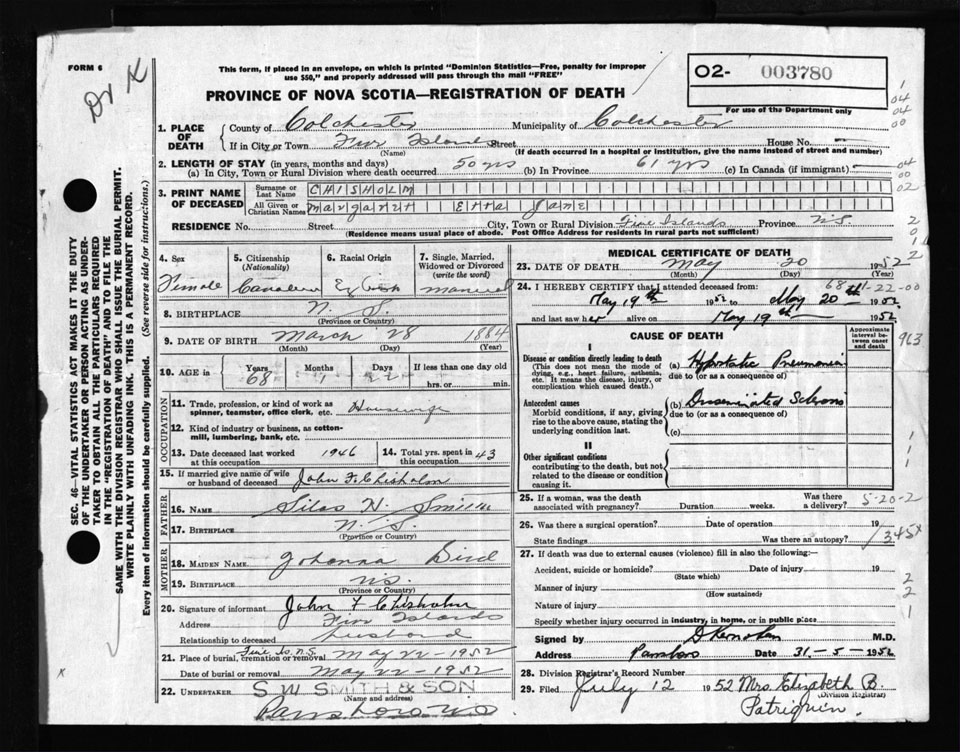 FORM 6
Dr K
This form, if placed in an envelope, on which is printed "Dominion Statistics—Free, penalty for improper
use $50," and properly addressed will pass through the mail "FREE"
02- 003780
PROVINCE OF NOVA SCOTIA—REGISTRATION OF DEATH
For use of the Department only
1. PLACE OF DEATH County of Colchester Municipality of Colchester
If in City or Town Five Islands Street House No. —
(Name) (If death occurred in a hospital or institution, give the name instead of street and number)
2. LENGTH OF STAY (in years, months and days)
(a) In City, Town or Rural Division where death occurred 50 yrs (b) In Province 61 yrs (c) In Canada (if immigrant)
3. PRINT NAME OF DECEASED
Surname or Last Name CHISHOLM
All Given or Christian Names Margaret Etta Jane
RESIDENCE No. Street City, Town or Rural Division Five Islands Province N.S.
(Residence means usual place of abode. Post Office Address for residents in rural parts not sufficient)
4. Sex Female
5. Citizenship (Nationality) Canadian
6. Racial Origin English
7. Single, Married, Widowed or Divorced (write the word) married
8. BIRTHPLACE N. S.
(Province or Country)
9. DATE OF BIRTH March 28 1884
(Month) (Day) (Year)
10. AGE in Years 68 Months 1 Days 22 If less than one day old
hrs. or min.
OCCUPATION
11. Trade, profession, or kind of work as spinner, teamster, office clerk, etc. Housewife
12. Kind of industry or business, as cotton-mill, lumbering, bank, etc.
13. Date deceased last worked at this occupation 1946
14. Total yrs. spent in this occupation 43
15. If married give name of wife or husband of deceased John F. Chisholm
FATHER
16. NAME Silas H.
17. BIRTHPLACE N. S.
(Province or Country)
MOTHER
18. MAIDEN NAME Johanna Bird
19. BIRTHPLACE N.S.
(Province or Country)
20. Signature of informant John F Chisholm
Address Five Islands
Relationship to deceased husband
21. Place of burial, cremation or removal Five Is. N.S. May 22 - 1952
Date of burial or removal May 22 - 1952
22. UNDERTAKER S W SMITH & SON
(Name and address)
Parrsboro N.S.
MEDICAL CERTIFICATE OF DEATH
23. DATE OF DEATH May 20 1952
(Month) (Day) (Year)
24. I HEREBY CERTIFY that I attended deceased from:
68-1-22-00
May 19th 1952 to May 20th 1952
and last saw her alive on May 19th 1952
CAUSE OF DEATH
Approximate interval between onset and death
963
I
Disease or condition directly leading to death
(This does not mean the mode of dying, e.g., heart failure, asthenia, etc. It means the disease, injury, or complication which caused death.)
(a) Hypostatic Pneumonia
due to (or as a consequence of)
Antecedent causes
Morbid conditions, if any, giving rise to the above cause, stating the underlying condition last.
(b) Disseminated Sclerosis
due to (or as a consequence of)
(c)
II
Other significant conditions
contributing to the death, but not related to the disease or condition causing it.
25. If a woman, was the death associated with pregnancy? Duration weeks. Was there a delivery?
5-20-2
26. Was there a surgical operation? Date of operation 19
State findings Was there an autopsy?
345x
27. If death was due to external causes (violence) fill in also the following:—
Accident, suicide or homicide? Date of injury 19
(State which)
Manner of injury
(How sustained)
Nature of injury
Specify whether injury occurred in industry, in home, or in public place
Signed by M.D.
Address Parrsboro Date 31-5-1952
28. Division Registrar's Record Number
29. Filed July 12 1952 Mrs. Elizabeth B. Patriquin.
(Division Registrar)
SEC. 46—VITAL STATISTICS ACT MAKES IT THE DUTY
OF THE UNDERTAKER OR PERSON ACTING AS UNDERTAKER TO OBTAIN ALL THE PARTICULARS REQUIRED
IN THE "REGISTRATION OF DEATH" AND TO FILE THE
SAME WITH THE DIVISION REGISTRAR WHO SHALL ISSUE THE BURIAL PERMIT.
WRITE PLAINLY WITH UNFADING INK. THIS IS A PERMANENT RECORD.
Every item of information should be carefully supplied. (See reverse side for instructions.)